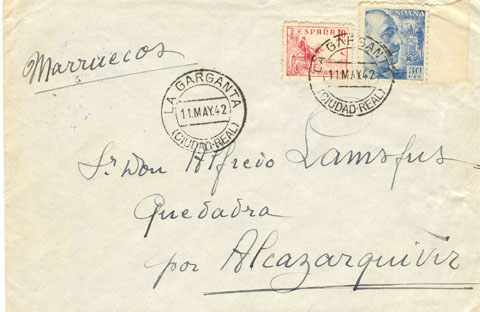 Marruecos
ESPAÑA
ESPAÑA
30
LA GARGANTA
11.MAY.42
(CIUDAD-REAL)
LA GARGANTA
11.MAY.42
(CIUDAD-REAL)
Sr. Don Alfredo Lamsfus
Quedadra
por Alcazarquivir